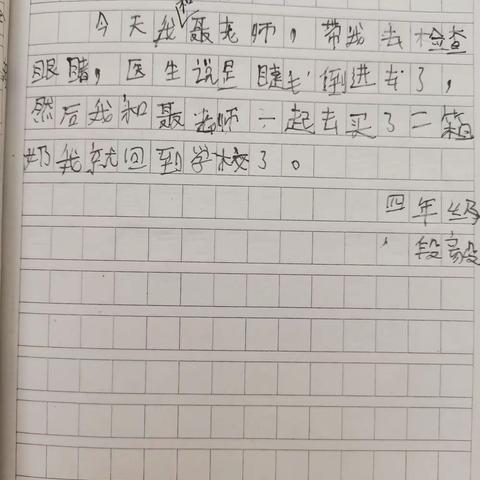 今天我和聂老师，带我去检查
眼睛，医生说是睫毛倒进去了，
然后我和聂老师一起去买了二箱
奶我就回到学校了。
四年级
段